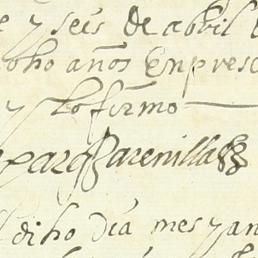 e y seis de abril
ocho años En presc
y lo firmo
arenillas
dicho día mes y an